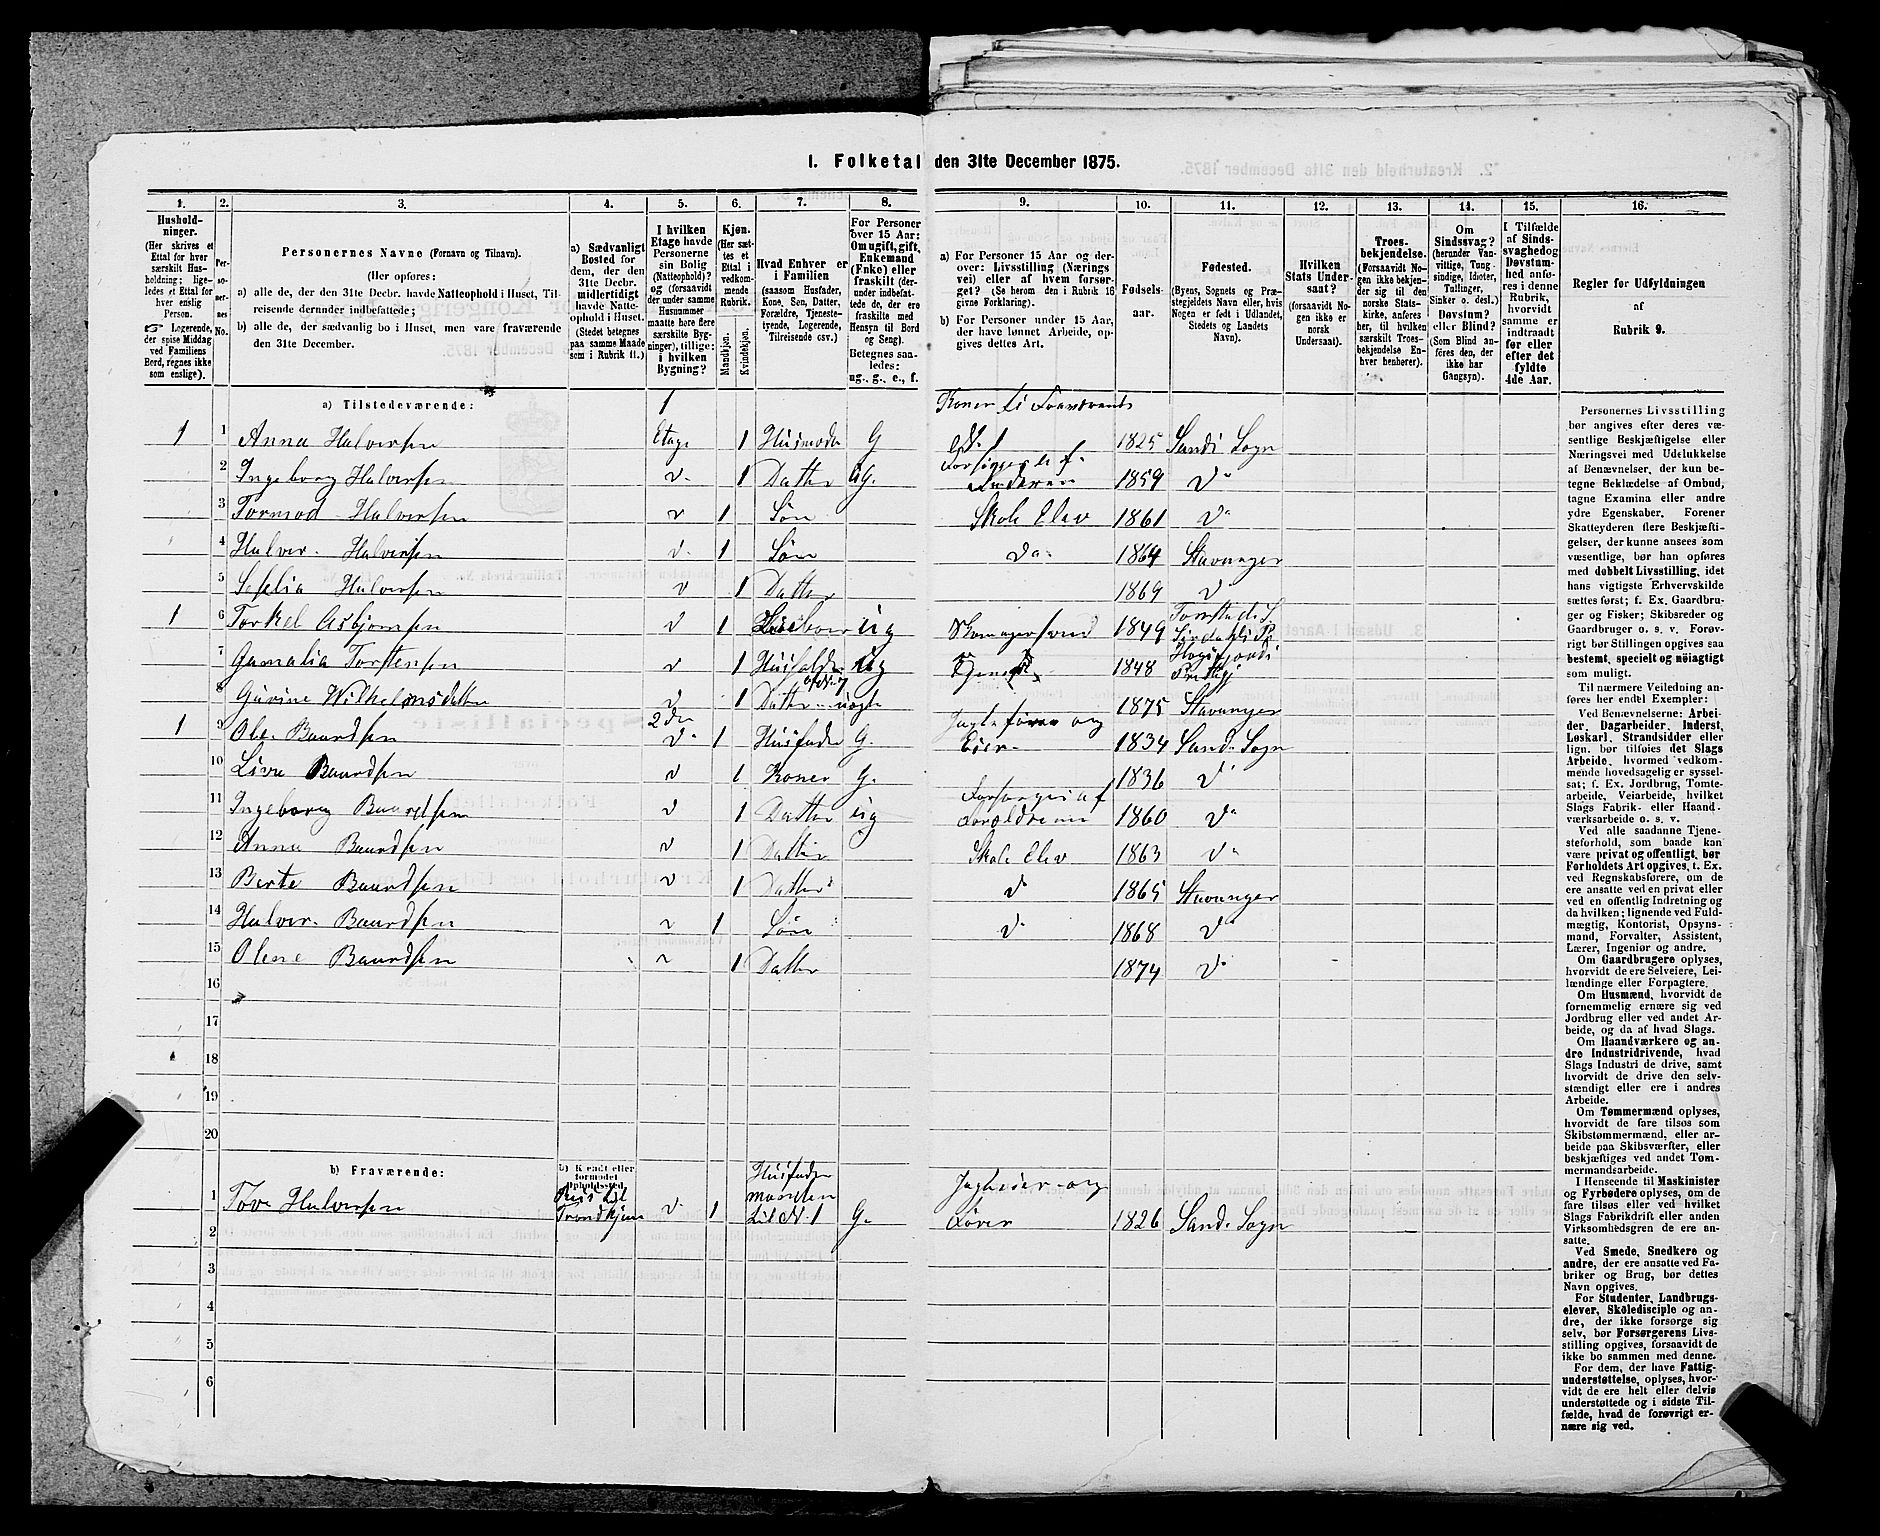 1. Folketal den 31te December 1875.
1. 2. 3. 4. 5. 6. 7. 8. 9. 10. 11. 12. 13. 14. 15. 16.
Hushold-
ninger.
(Her skrives et
Ettal for hver
særskilt Hus-
holdning; lige-
ledes et Ettal for
hver enslig
Person.
☞ Logerende,
der spise Middag
ved Familiens
Bord, regnes ikke
som enslige).
Per-
so-
ner-
nes
No.
Personernes Navne (Fornavn og Tilnavn).
(Her opføres:
a) alle de, der den 31te Decbr. havde Natteophold i Huset, Til-
reisende derunder indbefattede;
b) alle de, der sædvanlig bo i Huset, men vare fraværende
den 31te December.
a) Sædvanligt
Bosted for
dem, der den
31te Decbr.
midlertidigt
havde Natte-
ophold i Huset.
(Stedet betegnes
paa samme Maade
som i Rubrik 11.)
I hvilken
Etage havde
Personerne
sin Bolig
(Natteophold)?
og (forsaavidt
der under samme
Husnummer
maatte høre flere
særskilte Byg-
ninger), tillige:
i hvilken
Bygning?
Kjøn.
(Her sæt-
tes et
Ettal i
vedkom-
mende
Rubrik.
Mandkjøn.
Kvindekjøn.
Hvad Enhver er
i Familien
(saasom Husfader,
Kone, Søn, Datter,
Forældre, Tjeneste-
tyende, Logerende,
Tilreisende osv.)
For Personer
over 15 Aar:
Om ugift, gift,
Enkemand
(Enke) eller
fraskilt (der-
under indbefat-
tede de, der ere
fraskilte med
Hensyn til Bord
og Seng).
Betegnes saa-
ledes:
ug., g., e., f.
a) For Personer 15 Aar og der-
over: Livsstilling (Nærings-
vei) eller af hvem forsør-
get? (Se herom den i Rubrik 16
givne Forklaring).
b) For Personer under 15 Aar,
der have lønnet Arbeide, op-
gives dettes Art.
Fødsels-
aar.
Fødested.
(Byens, Sognets og Præ-
stegjeldets Navn eller, hvis
Nogen er født i Udlandet,
Stedets og Landets
Navn).
Hvilken
Stats Under-
saat?
(forsaavidt No-
gen ikke er
norsk
Undersaat).
Troes-
bekjendelse.
(Forsaavidt No-
gen ikke bekjen-
der sig til den
norske Stats-
kirke, anføres
her, til hvilken
særskilt Troes-
bekjendelse En-
hver henhører).
Om
Sindssvag?
(herunder Van-
vittige, Tung-
sindige, Idioter,
Tullinger,
Sinker o. desl.)
Døvstum?
eller Blind?
(Som Blind an-
føres den, der
ikke har
Gangsyn).
I Tilfælde
af Sinds-
svaghed og
Døvstum-
hed anfø-
res i denne
Rubrik,
hvorvidt
samme er
indtraadt
før eller
efter det
fyldte
4de Aar.
Regler for Udfyldningen
af
Rubrik 9.
a) Tilstedeværende: 1
1 1 Anna Halversen Etage 1 Husmoder G 1825 Sands Sogn
2 Ingeborg Halversen 1 Datter ug. 1859 do
3 Tormod Halversen 1 Søn Skole Elev 1861 do
4 Halver Halversen 1 Søn do 1864 Stavanger
5 Halversen 1 Datter 1869 do
1 6 Torkel Asbjørnsen 1 ug Skomagersvend 1849
7 Gamalia Torstensen 1 ug 1848
8 Gurine Wilhelmsdatter 1 Datter uægte 1875 Stavanger
1 9 Ole Baardsen 2den 1 Husfader G. Eier 1834 Sand Sogn
10 Live Baardsen 1 Konen G. 1836 do
11 Ingeborg Baardsen 1 Datter ug Forsørges af Forældrene 1860 do
12 Anna Baardsen 1 Datter Skole Elev 1863 do
13 Berte Baardsen 1 Datter do 1865 Stavanger
14 Halver Baardsen 1 Søn do 1868 do
15 Olene Baardsen 1 Datter 1874 do
16
17
18
19
20
b) Fraværende:
b) Kjendt eller
formodet
Opholdssted.
1 Halversen Trondhjem 1 Husfader manden til N. 1 G. 1826 Sand Sogn
2
3
4
5
6
Personernes Livsstilling
bør angives efter deres væ-
sentlige Beskjæftigelse eller
Næringsvei med Udelukkelse
af Benævnelser, der kun be-
tegne Beklædelse af Ombud,
tagne Examina eller andre
ydre Egenskaber. Forener
Skatteyderen flere Beskjæfti-
gelser, der kunne ansees som
væsentlige, bør han opføres
med dobbelt Livsstilling, idet
hans vigtigste Erhvervskilde
sættes først; f. Ex. Gaardbru-
ger og Fisker; Skibsreder og
Gaardbruger o. s. v. Forøv-
rigt bør Stillingen opgives saa
bestemt, specielt og nøiagtigt
som muligt.
Til nærmere Veiledning an-
føres her endel Exempler:
Ved Benævnelserne: Arbei-
der, Dagarbeider, Inderst,
Løskarl, Strandsidder eller
lign. bør tilføies det Slags
Arbeide, hvormed vedkom-
mende hovedsagelig er syssel-
sat; f. Ex. Jordbrug, Tomte-
arbeide, Veiarbeide, hvilket
Slags Fabrik- eller Haand-
værksarbeide o. s. v.
Ved alle saadanne Tjene-
steforhold, som baade kan
være privat og offentligt, bør
Forholdets Art opgives, t. Ex.
ved Regnskabsførere, om de
ere ansatte ved en privat eller
ved en offentlig Indretning og
da hvilken; lignende ved Fuld-
mægtig, Kontorist, Opsyns-
mand, Forvalter, Assistent,
Lærer, Ingeniør og andre.
Om Gaardbrugere oplyses,
hvorvidt de ere Selveiere, Lei-
lændinge eller Forpagtere.
Om Husmænd, hvorvidt de
fornemmelig ernære sig ved
Jordbrug eller ved andet Ar-
beide, og da af hvad Slags.
Om Haandværkere og an-
dre Industridrivende, hvad
Slags Industri de drive, samt
hvorvidt de drive den selv-
stændigt eller ere i andres
Arbeide.
Om Tømmermænd oplyses,
hvorvidt de fare tilsøs som
Skibstømmermænd, eller ar-
beide paa Skibsværfter, eller
beskjæftiges ved andet Tøm-
mermandsarbeide.
I Henseende til Maskinister
og Fyrbødere oplyses, om de
fare tilsøs eller ved hvilket
Slags Fabrikdrift eller anden
Virksomhedsgren de ere an-
satte.
Ved Smede, Snedkere og
andre, der ere ansatte ved Fa-
briker og Brug, bør dettes
Navn opgives.
For Studenter, Landbrugs-
elever, Skoledisciple og an-
dre, der ikke forsørge sig
selv, bør Forsørgerens Livs-
stilling opgives, forsaavidt de
ikke bo sammen med denne.
For dem, der have Fattig-
understøttelse, oplyses, hvor-
vidt de ere helt eller delvis
understøttede og i sidste Til-
fælde, hvad de forøvrigt er-
nære sig ved.